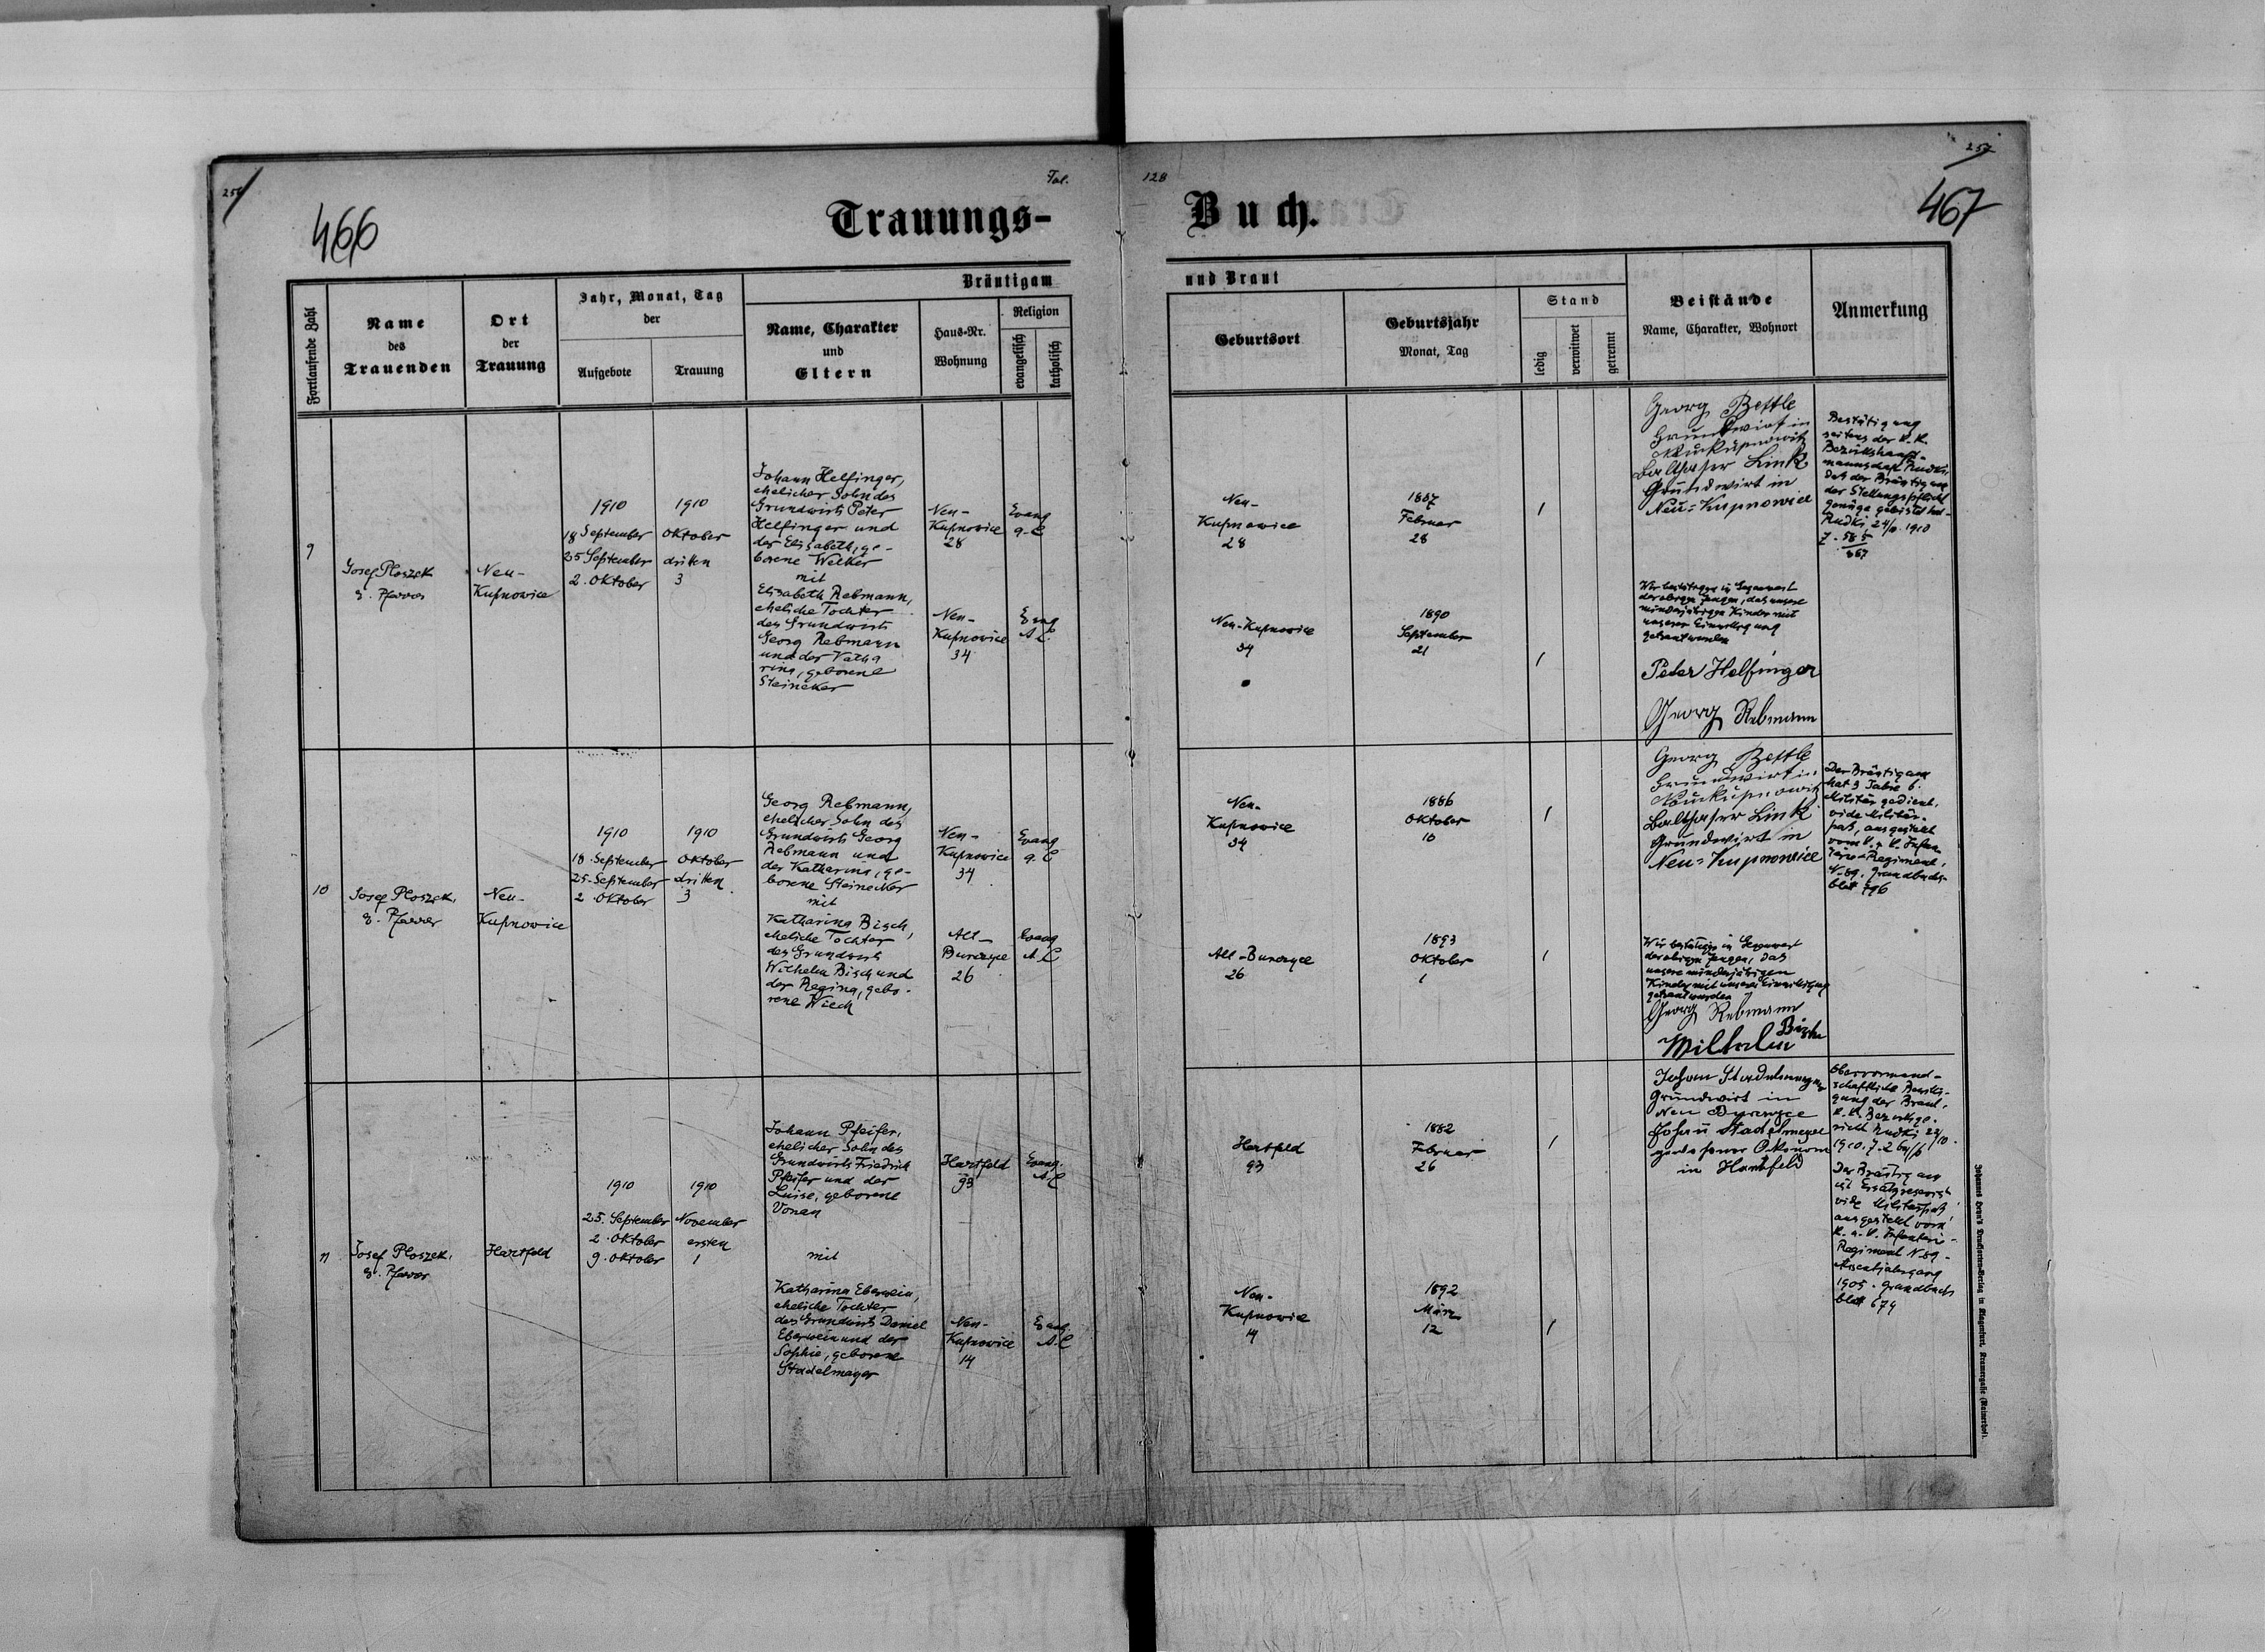 466
Fol.
128
467
Trauungs-
Buch.
Bräutigam
und Braut
Fortlaufende Zahl
Name
des
Trauenden
Ort
der
Trauung
Jahr, Monat, Tag
der
Aufgebote
Trauung
Name, Charakter
und
Eltern
Haus-Nr.
Wohnung
Religion
evangelisch
katholisch
Geburtsort
Geburtsjahr
Monat, Tag
Stand
ledig
verwitwet
getrennt
Beistände
Name, Charakter, Wohnort
Anmerkung
9
Josef Ploszek
ev. Pfarrer
Neu-
Kupnowice
1910
18 September
25 September
2. Oktober
1910
Oktober
dritten
3
Johann Helfinger,
ehelicher Sohn des
Grundwirts Peter
Helfinger und
der Elisabeth, ge-
borene Welker
mit
Elisabeth Rebmann,
eheliche Tochter
des Grundwirts
Georg Rebmann
und der Katha
rina, geborene
Steineker
Neu-
Kupnowice
28
Evang
Neu-
Kupnowice
34
Evang
A C
Neu-
Kupnowice
28
1887
Februar
28
Neu-Kupnowice
34
1890
September
21
Georg Bessle
Grundwirt in
Neukupnowitz
Balthaser Link
Grundwirt in
Neu-Kupnowice
Wir bestätigen in Gegenwart
der obigen Zeugen, daß unsere
minderjährigen Kinder mit
unserer Einwilligung
getraut werden
Peter Helfinger
Georg Rebmann
Bestätigung
seitens der k. k.
Bezirkshaupt-
mannschaft Rudki,
daß der Bräutigam
der Stellungspflicht
genüge geleistet hat
Rudki, 1910
10
Josef Ploszek,
ev. Pfarrer
Neu-
Kupnowice
1910
18. September
25. September
2. Oktober
1910
Oktober
dritten
3
Georg Rebmann,
ehelicher Sohn des
Grundwirts Georg
Rebmann und
der Katharina, ge-
borene Steinecker
mit
Katharina Bisch,
eheliche Tochter
des Grundwirts
Wilhelm Bisch und
der Regina, gebo-
rene Wiech
Neu-
Kupnowice
34
Evang
Alt-
Burczyce
26
Evang
A. C
Neu-
Kupnowice
34
1886
Oktober
10
Alt-Burczyce
26
1893
Oktober
1
Georg Bessle
Grundwirt in
Neukupnowitz
Balthaser Link
Grundwirt in
Neu-Kupnowice
Wir bestätigen in Gegenwart
der obigen Zeugen, daß
unsere minderjährigen
Kinder mit unserer Einwilligung
getraut werden
Georg Rebmann
Wilhelm
Der Bräutigam
hat 3 Jahre b.
Militär gedient,
vide Militär-
paß, ausgestellt
vom k. u. k. Infan
terie-Regiment,
N. 89, Grundbuchs-
blatt 796
11
Josef Ploszek,
ev. Pfarrer
Hartfeld
1910
25. September
2. Oktober
9. Oktober
1910
November
ersten
1
Johann Pfeifer,
ehelicher Sohn des
Grundwirts Friedrich
Pfeifer und der
Luise, geborene
Vonau
mit
Katharina Eberwein,
eheliche Tochter
des Grundwirts Daniel
Eberwein und der
Sophie, geborene
Stadelmayer
Hartfeld
93
Evang.
A. C
Neu-
Kupnowice
14
Evang.
A. C
Hartfeld
93
1882
Februar
26
Neu-
Kupnowice
14
1892
März
12
Johan
Grundwirt in
Neu Burczyce
Johann Stadelmayer
Ökonom
in Hartfeld
Obervormund-
schaftliche Bewilli-
gung der Braut,
k. k. Bezirksge-
richt Rudki
1910
Der Bräutigam
ist Ersatzreservist
vide Militärpaß
ausgestellt vom
k. u. k. Infanterie-
Regiment N. 89 -
Assentjahrgang
1905. Grundbuchs
blatt 674
Johannes Heyn's Drucksorten-Verlag in Klagenfurt, Kramergasse (Rainerhof).